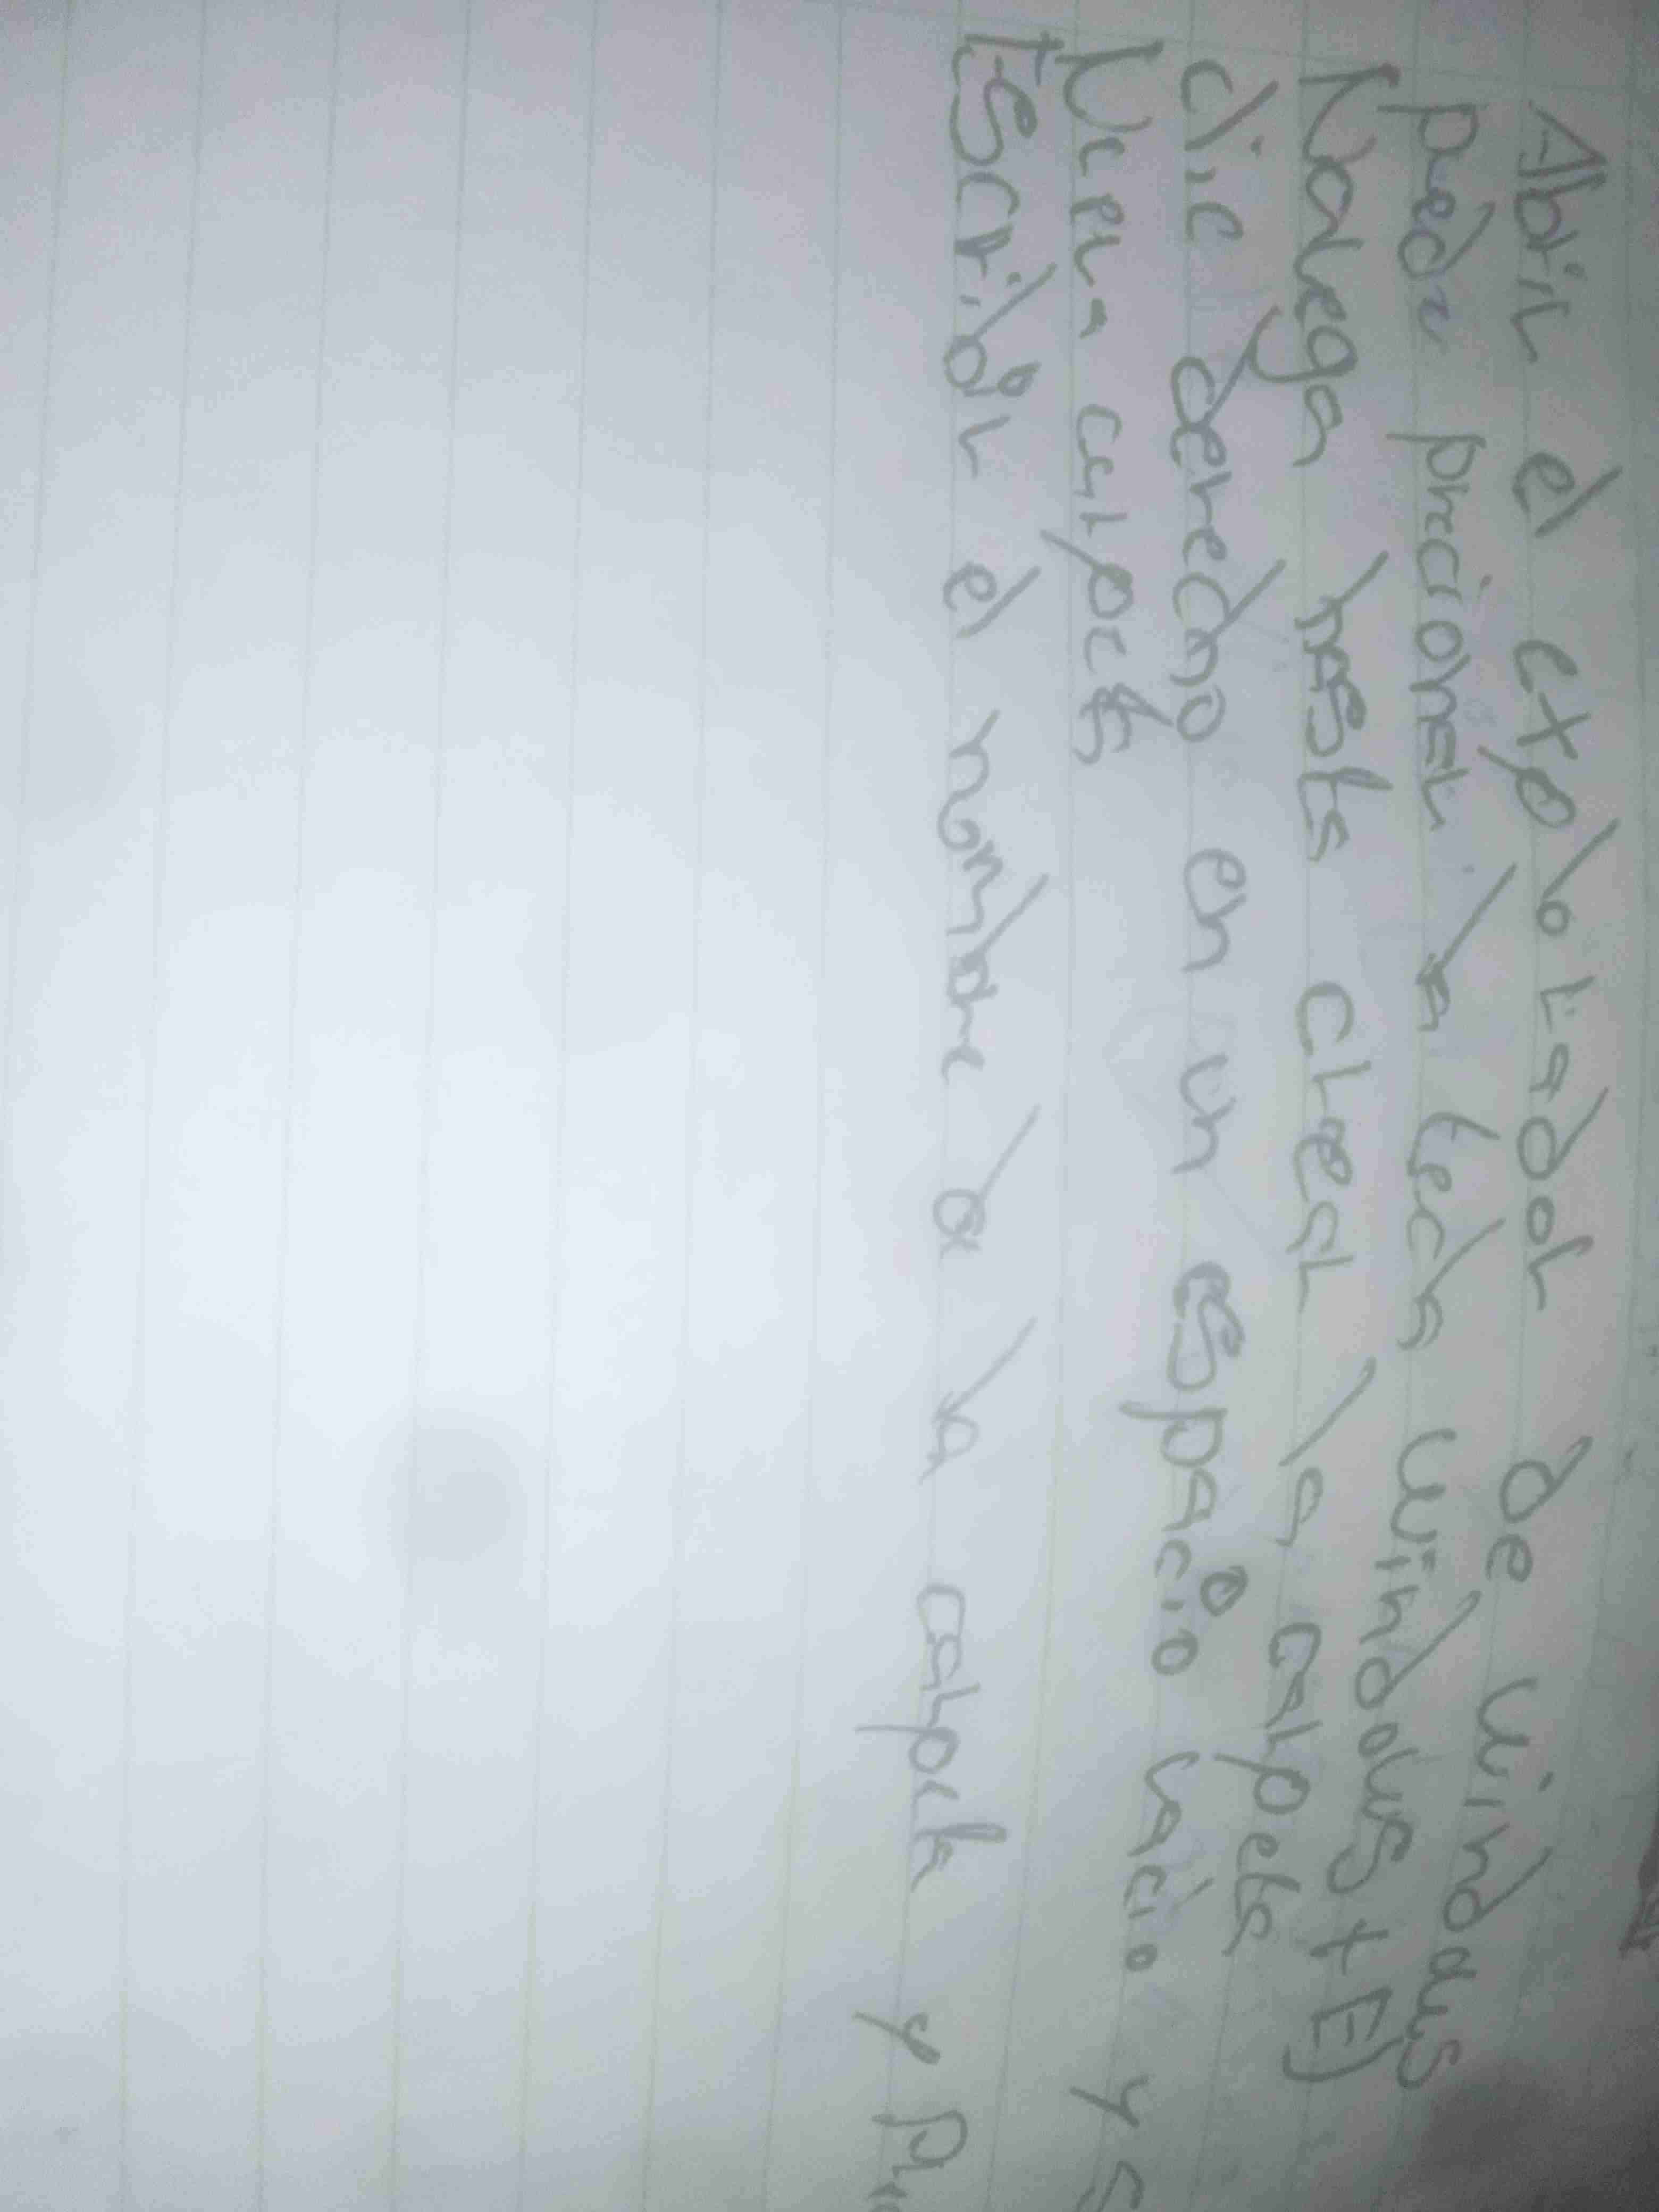 Abrir el explorador de windows
puede precionar la tecla windows + E)
Navega hasta crear la carpeta
clic derecho en un espacio vacio y s
Nueva carpeta
Escribir el nombre de la carpeta y pr